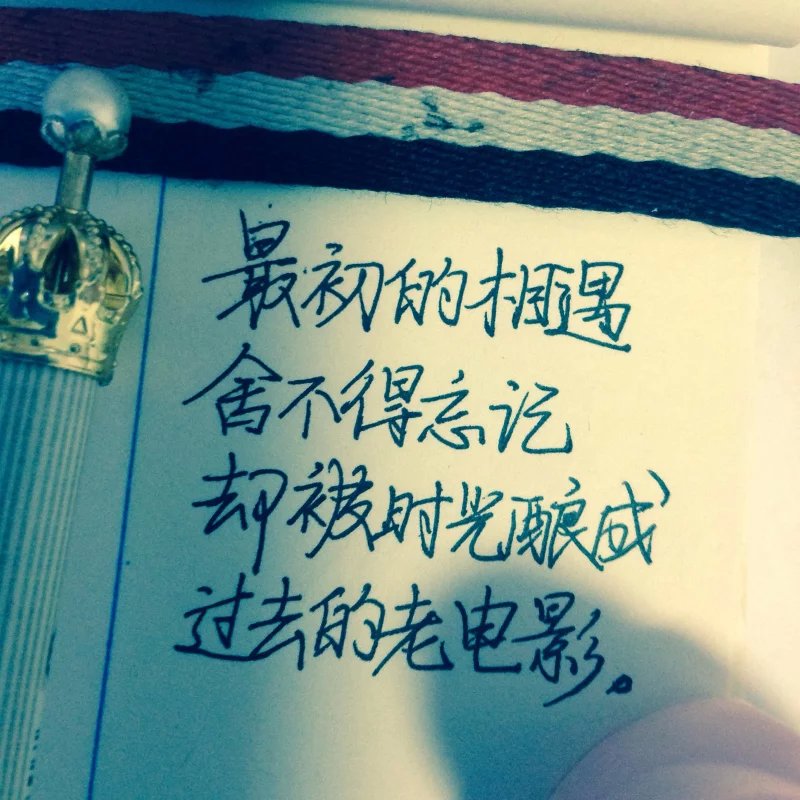 最初的相遇
舍不得忘记
却被时光酿成
过去的老电影。